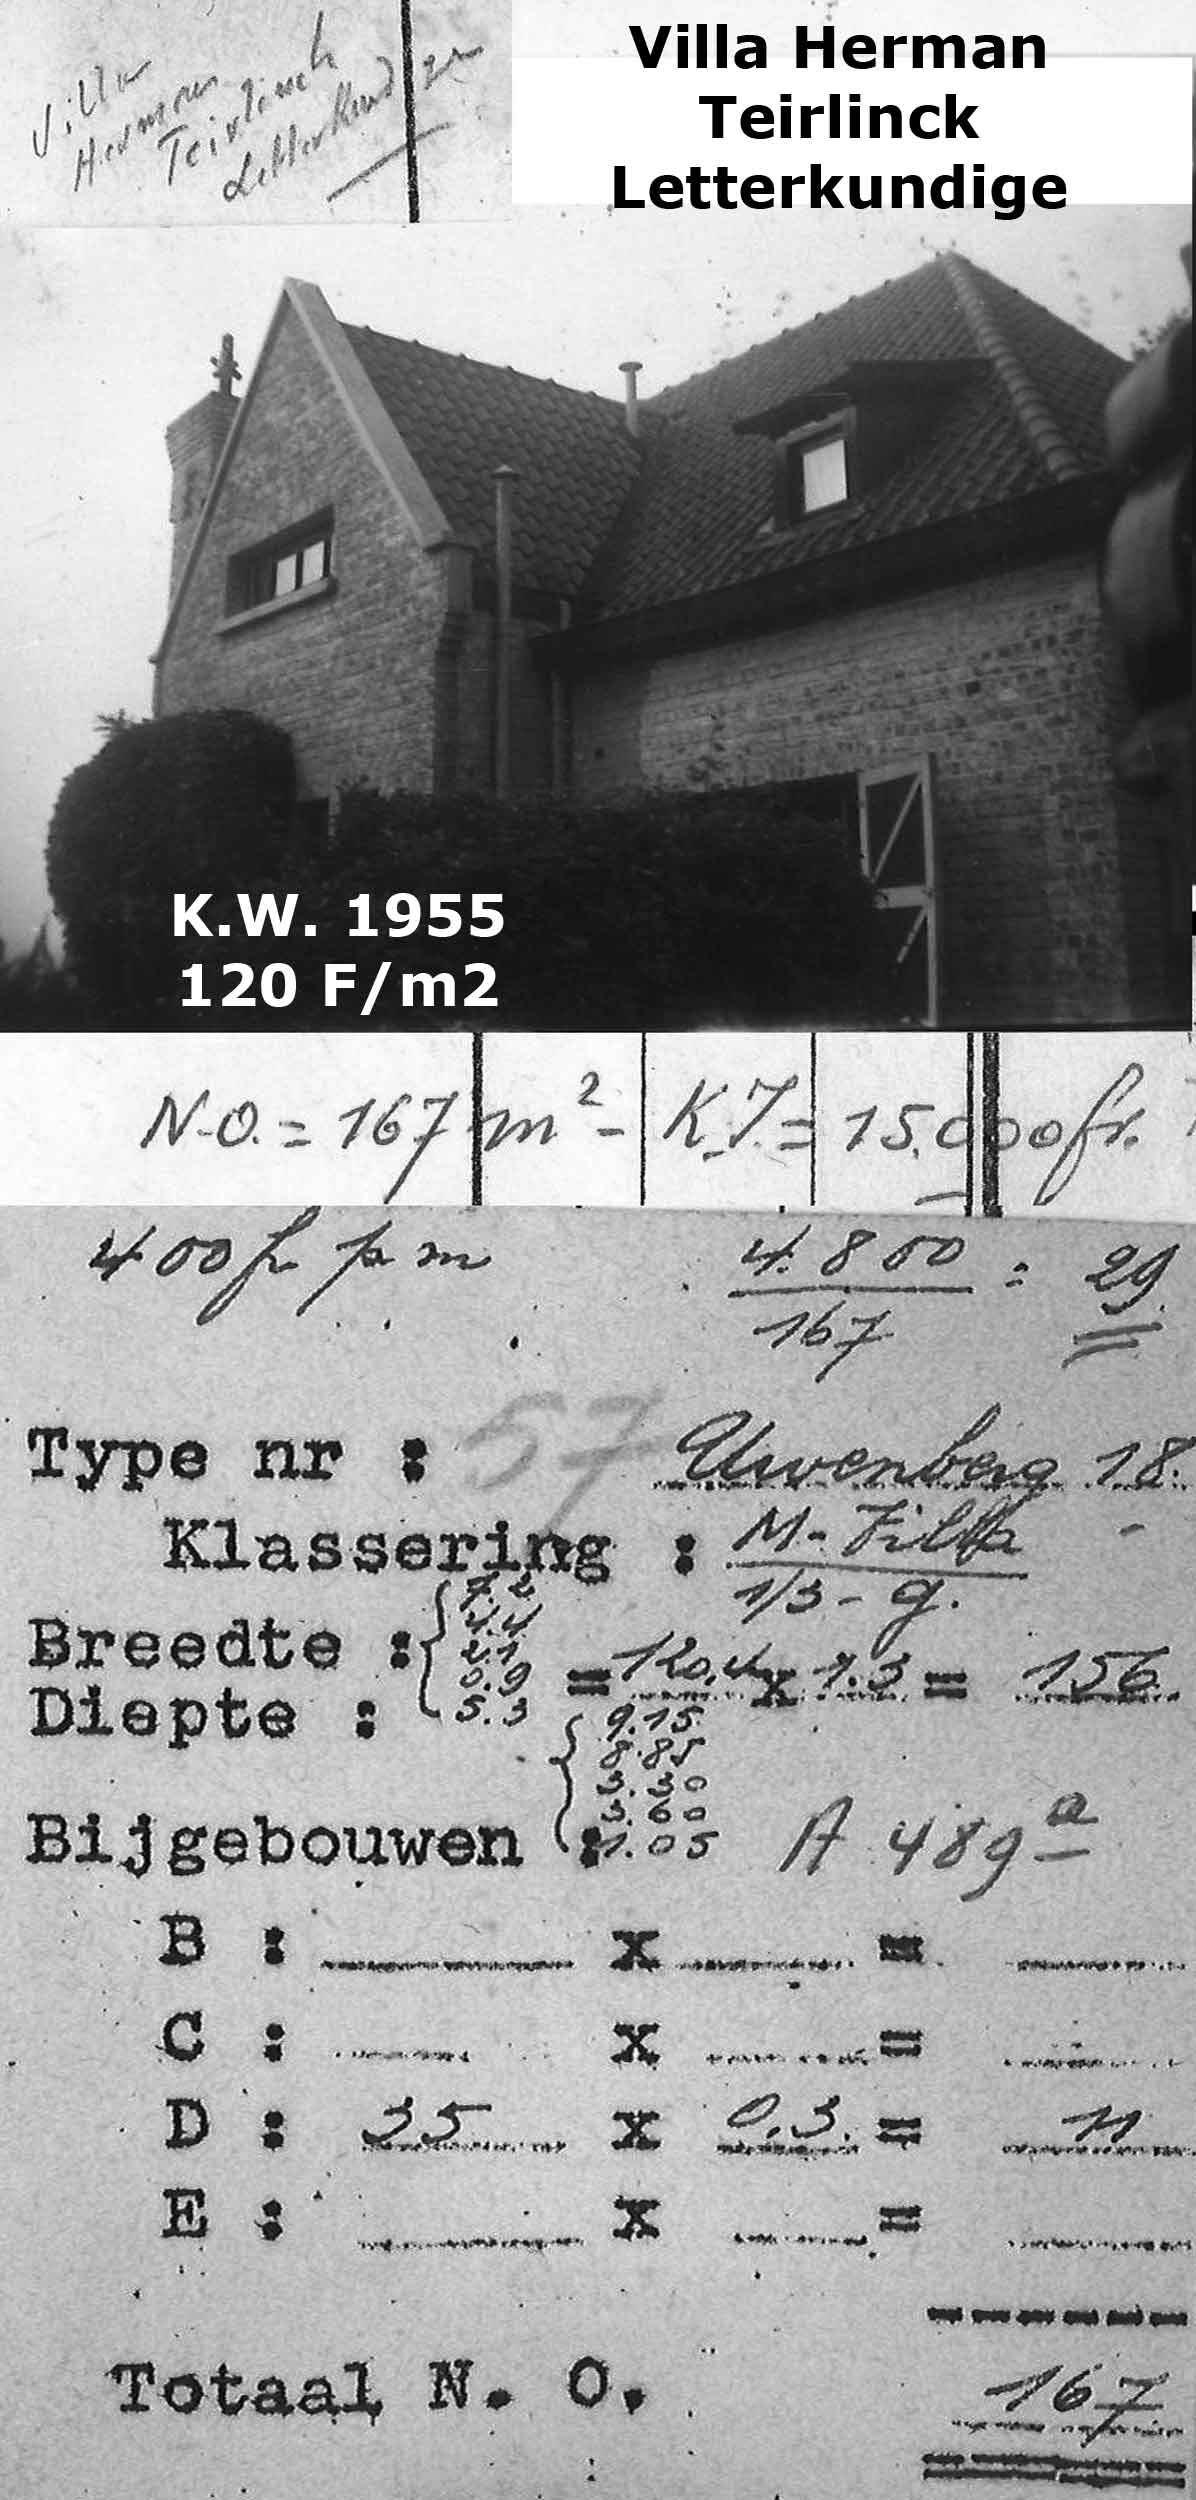 Villa
Herman
Teirlinck
Letterkundige
Villa Herman
Teirlinck
Letterkundige
K.W. 1955
120 F/m2
N.O. = 167 m² - K.I. = 15.000 fr.
400 fr p m 4.800 : 29
167
Type nr : 57 Uwenberg 18.
Klassering : M - Villa
1/3 - g.
Breedte : 7.2
4.4
2.1
0.9
5.3
= 120,4 x 1.3 = 156
Diepte : 9.15
8.85
3.30
3.60
1.05
Bijgebouwen : A 489a
B : x =
C : x =
D : 35 x 0.3. = 11
E : x =
Totaal N. O. 167